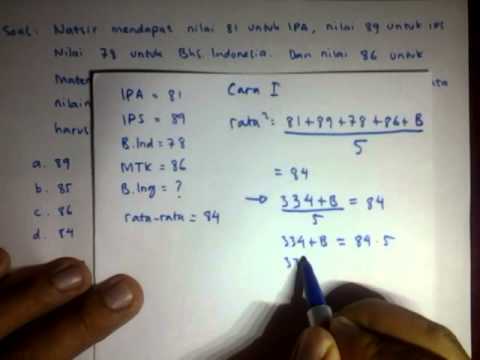 Soal : Natsir mendapat nilai 81 untuk IPA, nilai 89 untuk IPS
Nilai 78 untuk Bhs. Indonesia. Dan nilai 86 untuk
Mate
nilain
harus
a. 89
b. 85
c. 86
d. 84
IPA = 81
IPS = 89
B.Ind = 78
MTK = 86
B.Ing = ?
rata-rata = 84
Cara I
rata² = 81+89+78+86+B
5
= 84
→ 334+B = 84
5
334+B = 84.5
33